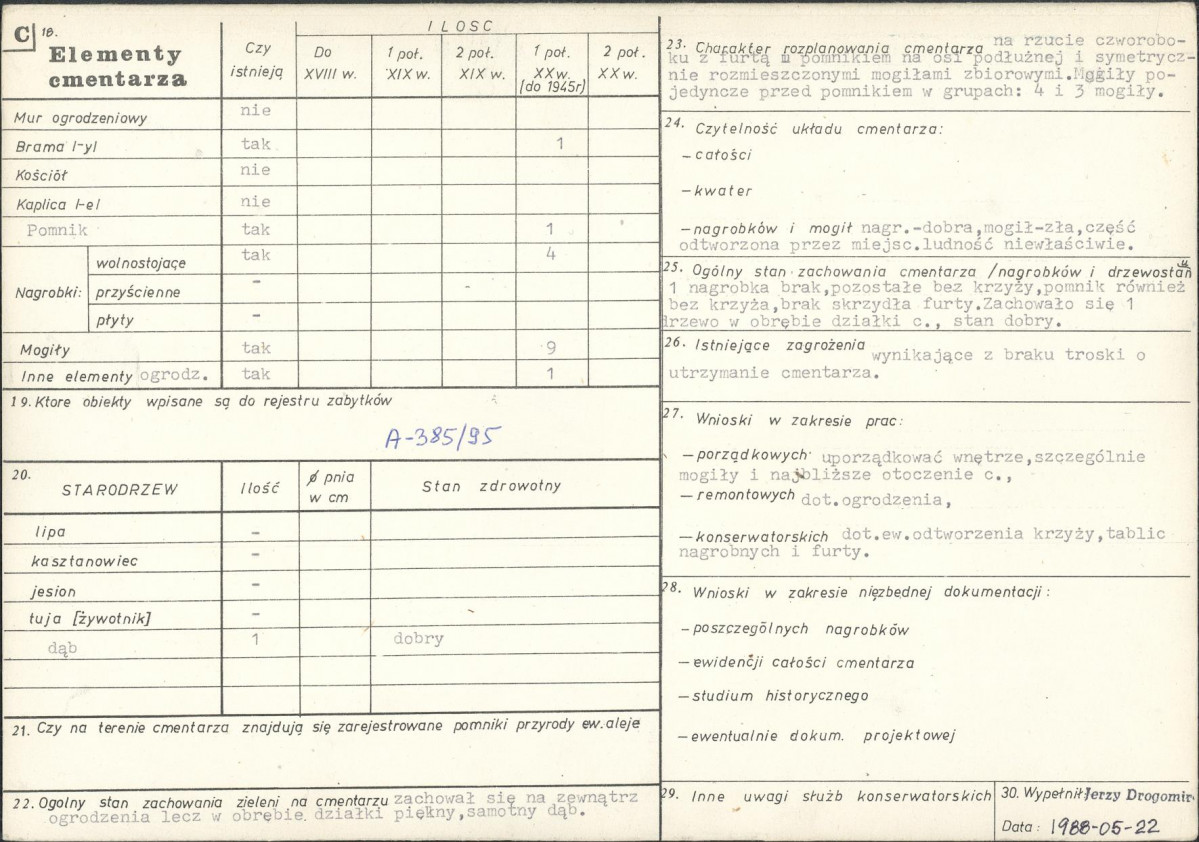 C 18.
Elementy
cmentarza
Czy
istnieją
ILOSC
Do
XVIII w.
1 poł.
XIX w.
2 poł.
XIX w.
1 poł.
XX w.
(do 1945r)
2 poł.
XX w.
Mur ogrodzeniowy nie
Brama l-yl tak 1
Kościół nie
Kaplica l-el nie
Pomnik tak 1
Nagrobki:
wolnostojące tak 4
przyścienne -
płyty -
Mogiły tak 9
Inne elementy ogrodz. tak 1
19. Ktore obiekty wpisane są do rejestru zabytków
A-385/95
20.
STARODRZEW
Ilość
ϕ pnia
w cm
Stan zdrowotny
lipa -
kasztanowiec -
jesion -
tuja [żywotnik] -
dąb 1 dobry
21. Czy na terenie cmentarza znajdują się zarejestrowane pomniki przyrody ew. aleje
22. Ogolny stan zachowania zieleni na cmentarzu zachował się na zewnątrz
ogrodzenia lecz w obrębie działki piękny,samotny dąb.
23. Charakter rozplanowania cmentarza na rzucie czworobo-
ku z furtą i pomnikiem na osi podłużnej i symetrycz-
nie rozmieszczonymi mogiłami zbiorowymi.Mogiły po-
jedyncze przed pomnikiem w grupach: 4 i 3 mogiły.
24. Czytelność układu cmentarza:
- całości
- kwater
- nagrobków i mogił nagr.-dobra,mogił-zła,część
odtworzona przez miejsc.ludność niewłaściwie.
25. Ogólny stan zachowania cmentarza /nagrobków i drzewostanu
1 nagrobka brak,pozostałe bez krzyży,pomnik również
bez krzyża,brak skrzydła furty.Zachowało się 1
drzewo w obrębie działki c., stan dobry.
26. Istniejące zagrożenia wynikające z braku troski o
utrzymanie cmentarza.
27. Wnioski w zakresie prac:
- porządkowych uporządkować wnętrze,szczególnie
mogiły i najbliższe otoczenie c.,
- remontowych dot.ogrodzenia,
- konserwatorskich dot.ew.odtworzenia krzyży,tablic
nagrobnych i furty.
28. Wnioski w zakresie niezbędnej dokumentacji:
- poszczególnych nagrobków
- ewidencji całości cmentarza
- studium historycznego
- ewentualnie dokum. projektowej
29. Inne uwagi służb konserwatorskich
30. Wypełnił Jerzy Drogomir
Data: 1988-05-22